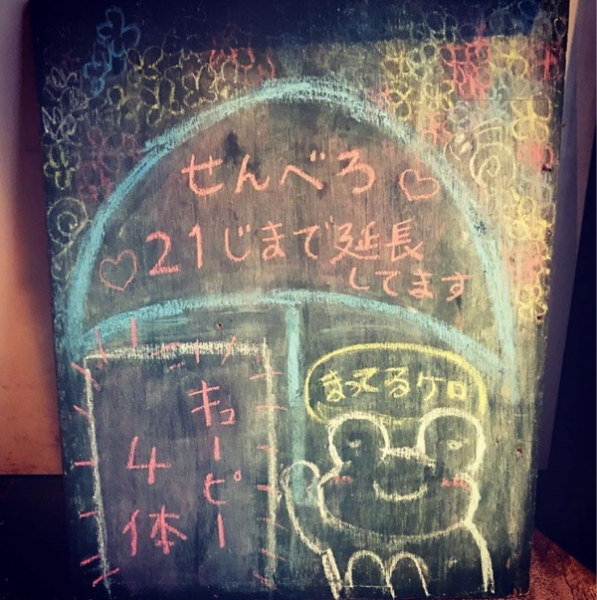 せんべろ♡
♡21じまで延長
してます
まってるケロ
キューピー
4体